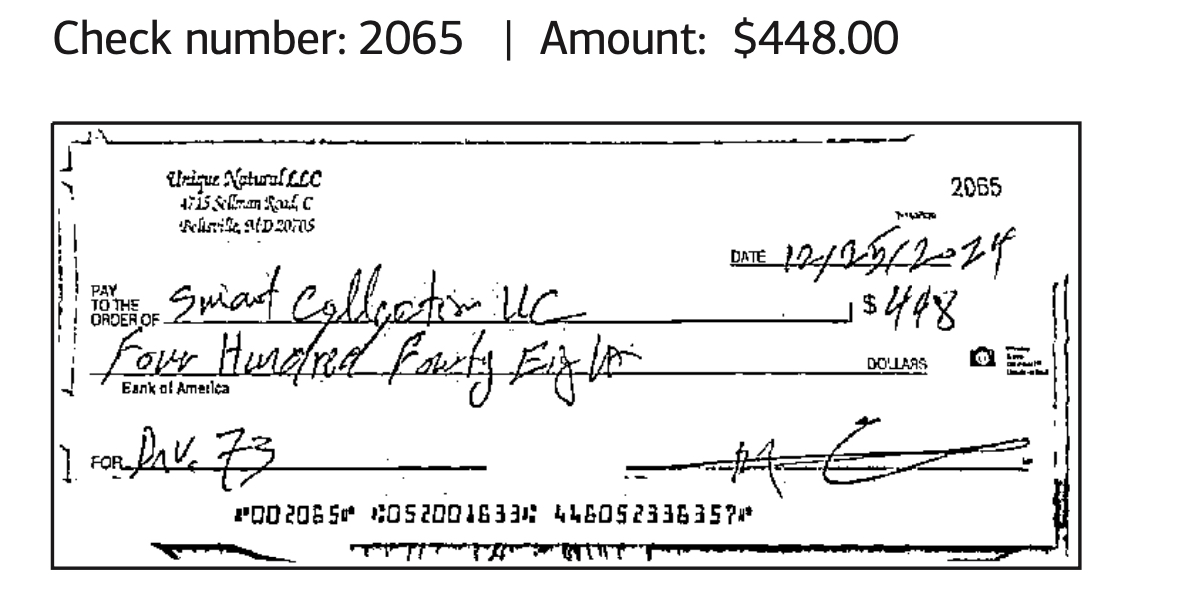 Check number: 2065 | Amount: $448.00
Unique Natural LLC
2065
4715 Sellman Road, C
Beltsville, MD 20705
DATE 12/25/2024
PAY TO THE ORDER OF Smart Collection LLC $ 448
Four Hundred Fourty Eight DOLLARS
Bank of America
FOR Inv. 73
⑈002065⑈ ⑆052001633⑆ 446052336357⑈